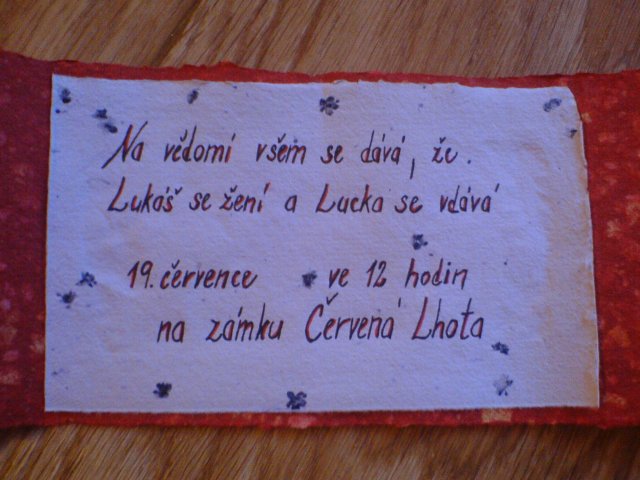 Na vědomí všem se dává, že.
Lukáš se žení a Lucka se vdává
19. července ve 12 hodin
na zámku Červená Lhota